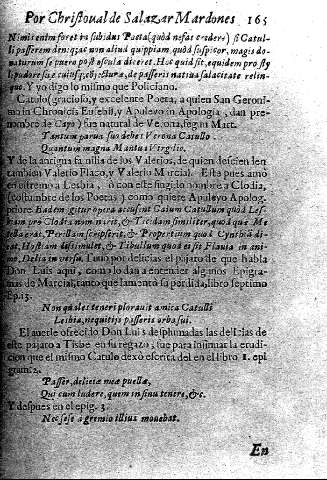 Por Christoual de Salazar Mardones 165
Nimis enim foret insubidus Poeta (quod nefas credere) si Catulli
passerem denique nunc aliud quippiam, quòd suspicor, magis do
naturum se puero post oscula diceret. Hoc quid sit, equidem pro sty
li pudore suæ cuiusque coniecturæ, de passeris natiua salacitate relin
quo. Y yo digo lo mismo que Policiano.
Catulo (gracioso, y excelente Poeta, a quien San Geroni-
mo in Chronicis Eusebij, y Apuleyo in Apologia, dan pre-
nombre de Cayo) fue natural de Verona, segun Mart.
Tantum parua suo debet Verona Catullo
Quantum magna Mantua Virgilio.
Y de la antigua familia de los Valerios, de quien descienden
tambien Valerio Flaco, y Valerio Marcial. Este pues amò
en estremo a Lesbia, ò con este fingido nombre a Clodia,
(costumbre de los Poetas) como quiere Apuleyo Apolog.
Eadem igitur opera accusent Caium Catullum quòd Les-
biam pro Clodia nominarit, & Ticidam similiter, quòd quæ Me
tella erat, Perillam scripserit, & Propertium quòd Cynthiã di
cat, Hostiam dissimulet, & Tibullum quòd ei sit Plania in ani
mo, Delia in versu. Tuuo por delicias el pajaro de que habla
Don Luis aqui, como lo dan a entender algunos Epigra-
mas de Marcial, tanto que lamentò su perdida, libro septimo
Epi.13.
Non quales teneri plorauit amica Catulli
Lesbia, nequitijs passeris orba sui.
El auerle ofrecido Don Luis desplumadas las delicias de
este pajaro a Tisbe en su regazo, fue para insinuar la erudi-
cion que el mismo Catulo dexò escrita del en el libro 1. epi
gram. 2.
Passer, deliciæ meæ puellæ,
Qui cum ludere, quem in sinu tenere, &c.
Y despues en el epig. 3
Nec sese a gremio illius mouebat.
En